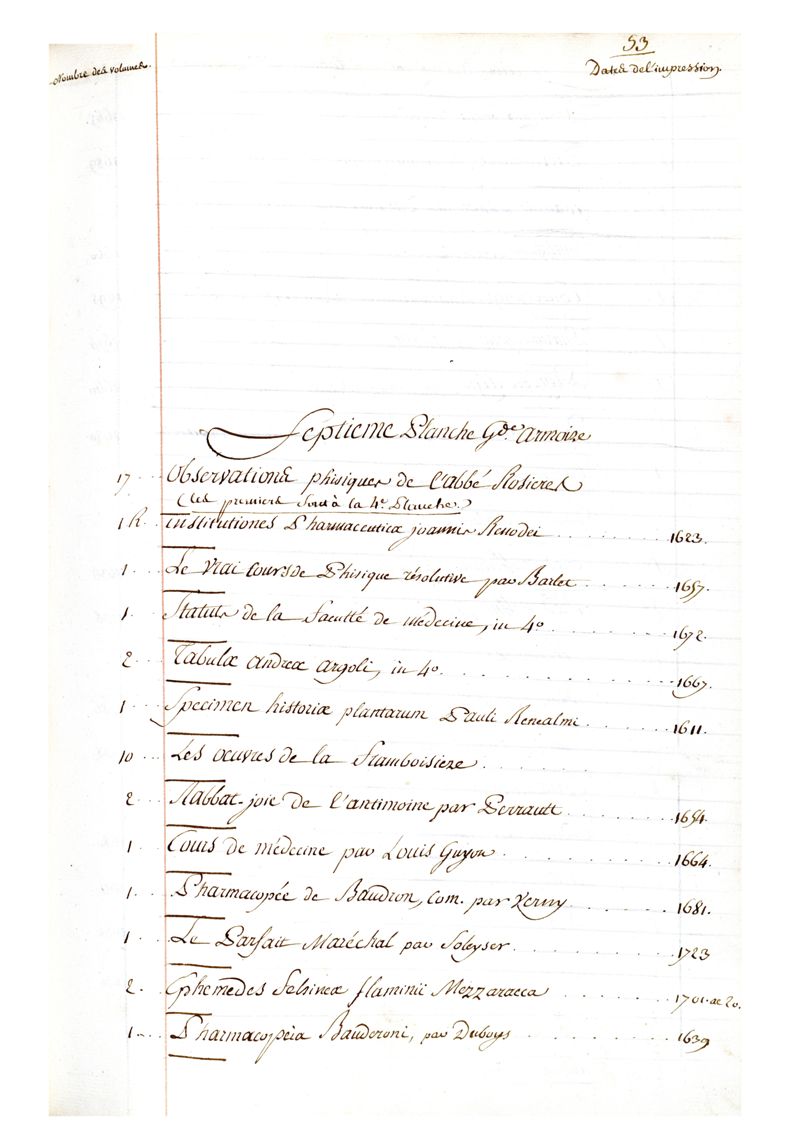 53
Nombre des volumes.
Dates de l'impression
Septieme Planche Gde. Armoire
17 Observations phisiques de l'abbé Rosieres
(les premiers sont à la 4e. Planche.)
1 R. institutiones Pharmaceuticæ joannis Renodei 1623.
1. Le vrai cours de Phisique résolutive par Barlet 1657.
1. Statuts de la faculté de médecine, in 4o 1672.
2. Tabulæ andreæ argoli, in 4o. 1667.
1. Specimen historiæ plantarum Pauli Renealmi 1611.
10 Les œuvres de la framboisiere
2. Rabbat-joie de l'antimoine par Perrault 1654.
1. Cours de médecine par Louis Guyon 1664.
1. Pharmacopée de Baudron, com. par Verny 1681.
1. Le Parfait Maréchal par Soleyser 1723
2. Ephemedes flaminii Mezzaracca 1701. ac 20.
1. Pharmacopeia Bauderoni, par Duboys 1639